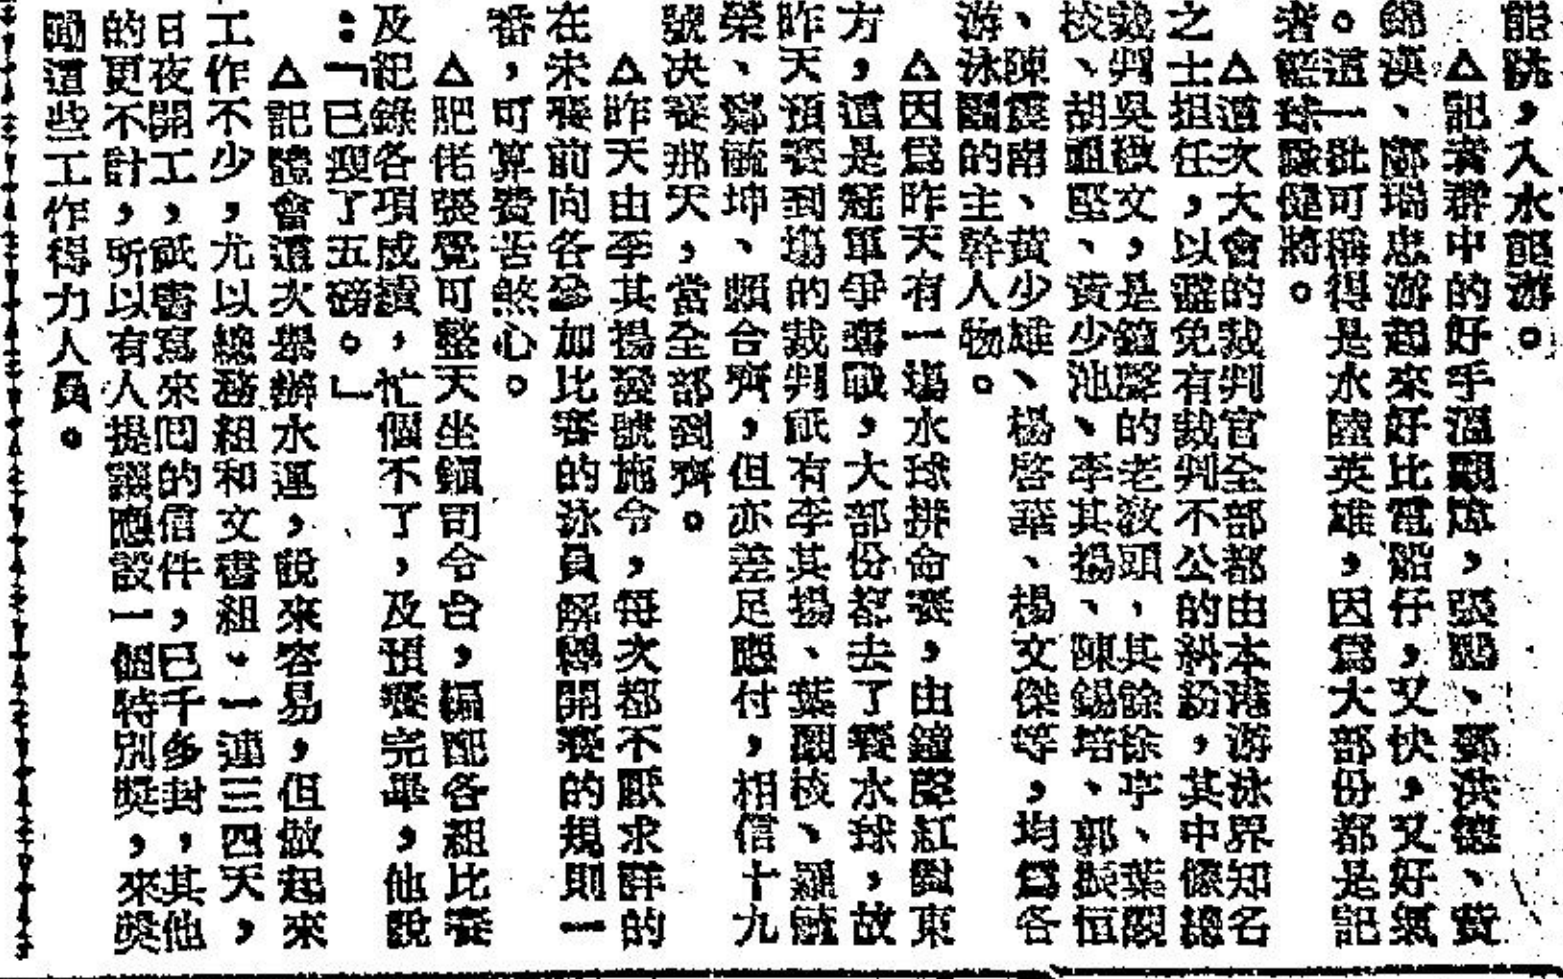 能跳，入水能游。
△記者群中的好手溫顯偉，張鵬、鄧洪德、黃
錦漢、鄺瑞忠游起來好比電船仔，又快，又好氣
。這一批可稱得是水陸英雄，因爲大部份都是記
者籃球隊健將。
△這次大會的裁判官全部都由本港游泳界知名
之士担任，以避免有裁判不公的糾紛，其中像總
裁判吳啟文，是鐘聲的老教頭，其餘徐亨、葉觀
校、胡祖堅、黃少池、李其揚、陳錫培、郭振恒
、陳震南、黃少雄、楊啓華、楊文傑等，均爲各
游泳團的主幹人物。
△因爲昨天有一場水球拼命賽，由鐘聲紅對東
方，這是冠軍爭奪戰，大部份都去了賽水球，故
昨天預賽到塲的裁判祇有李其揚、葉觀校、羅毓
榮、鄺毓坤、賴合齊，但亦差足應付，相信十九
號决賽那天，當全部到齊。
△昨天由李其揚發號施令，每次都不厭求詳的
在未賽前向各參加比賽的泳員解釋開賽的規則一
番，可算費苦煞心。
△肥佬張覺可整天坐鎭司令台，編配各組比賽
及紀錄各項成績，忙個不了，及預賽完畢，他說
：「已瘦了五磅。」
△記體會這次舉辦水運，說來容易，但做起來
工作不少，尤以總務組和文書組，一連三四天，
日夜開工，祇書寫來囘的信件，已千多封，其他
的更不計，所以有人提議應設一個特別奬，來奬
勵這些工作得力人員。